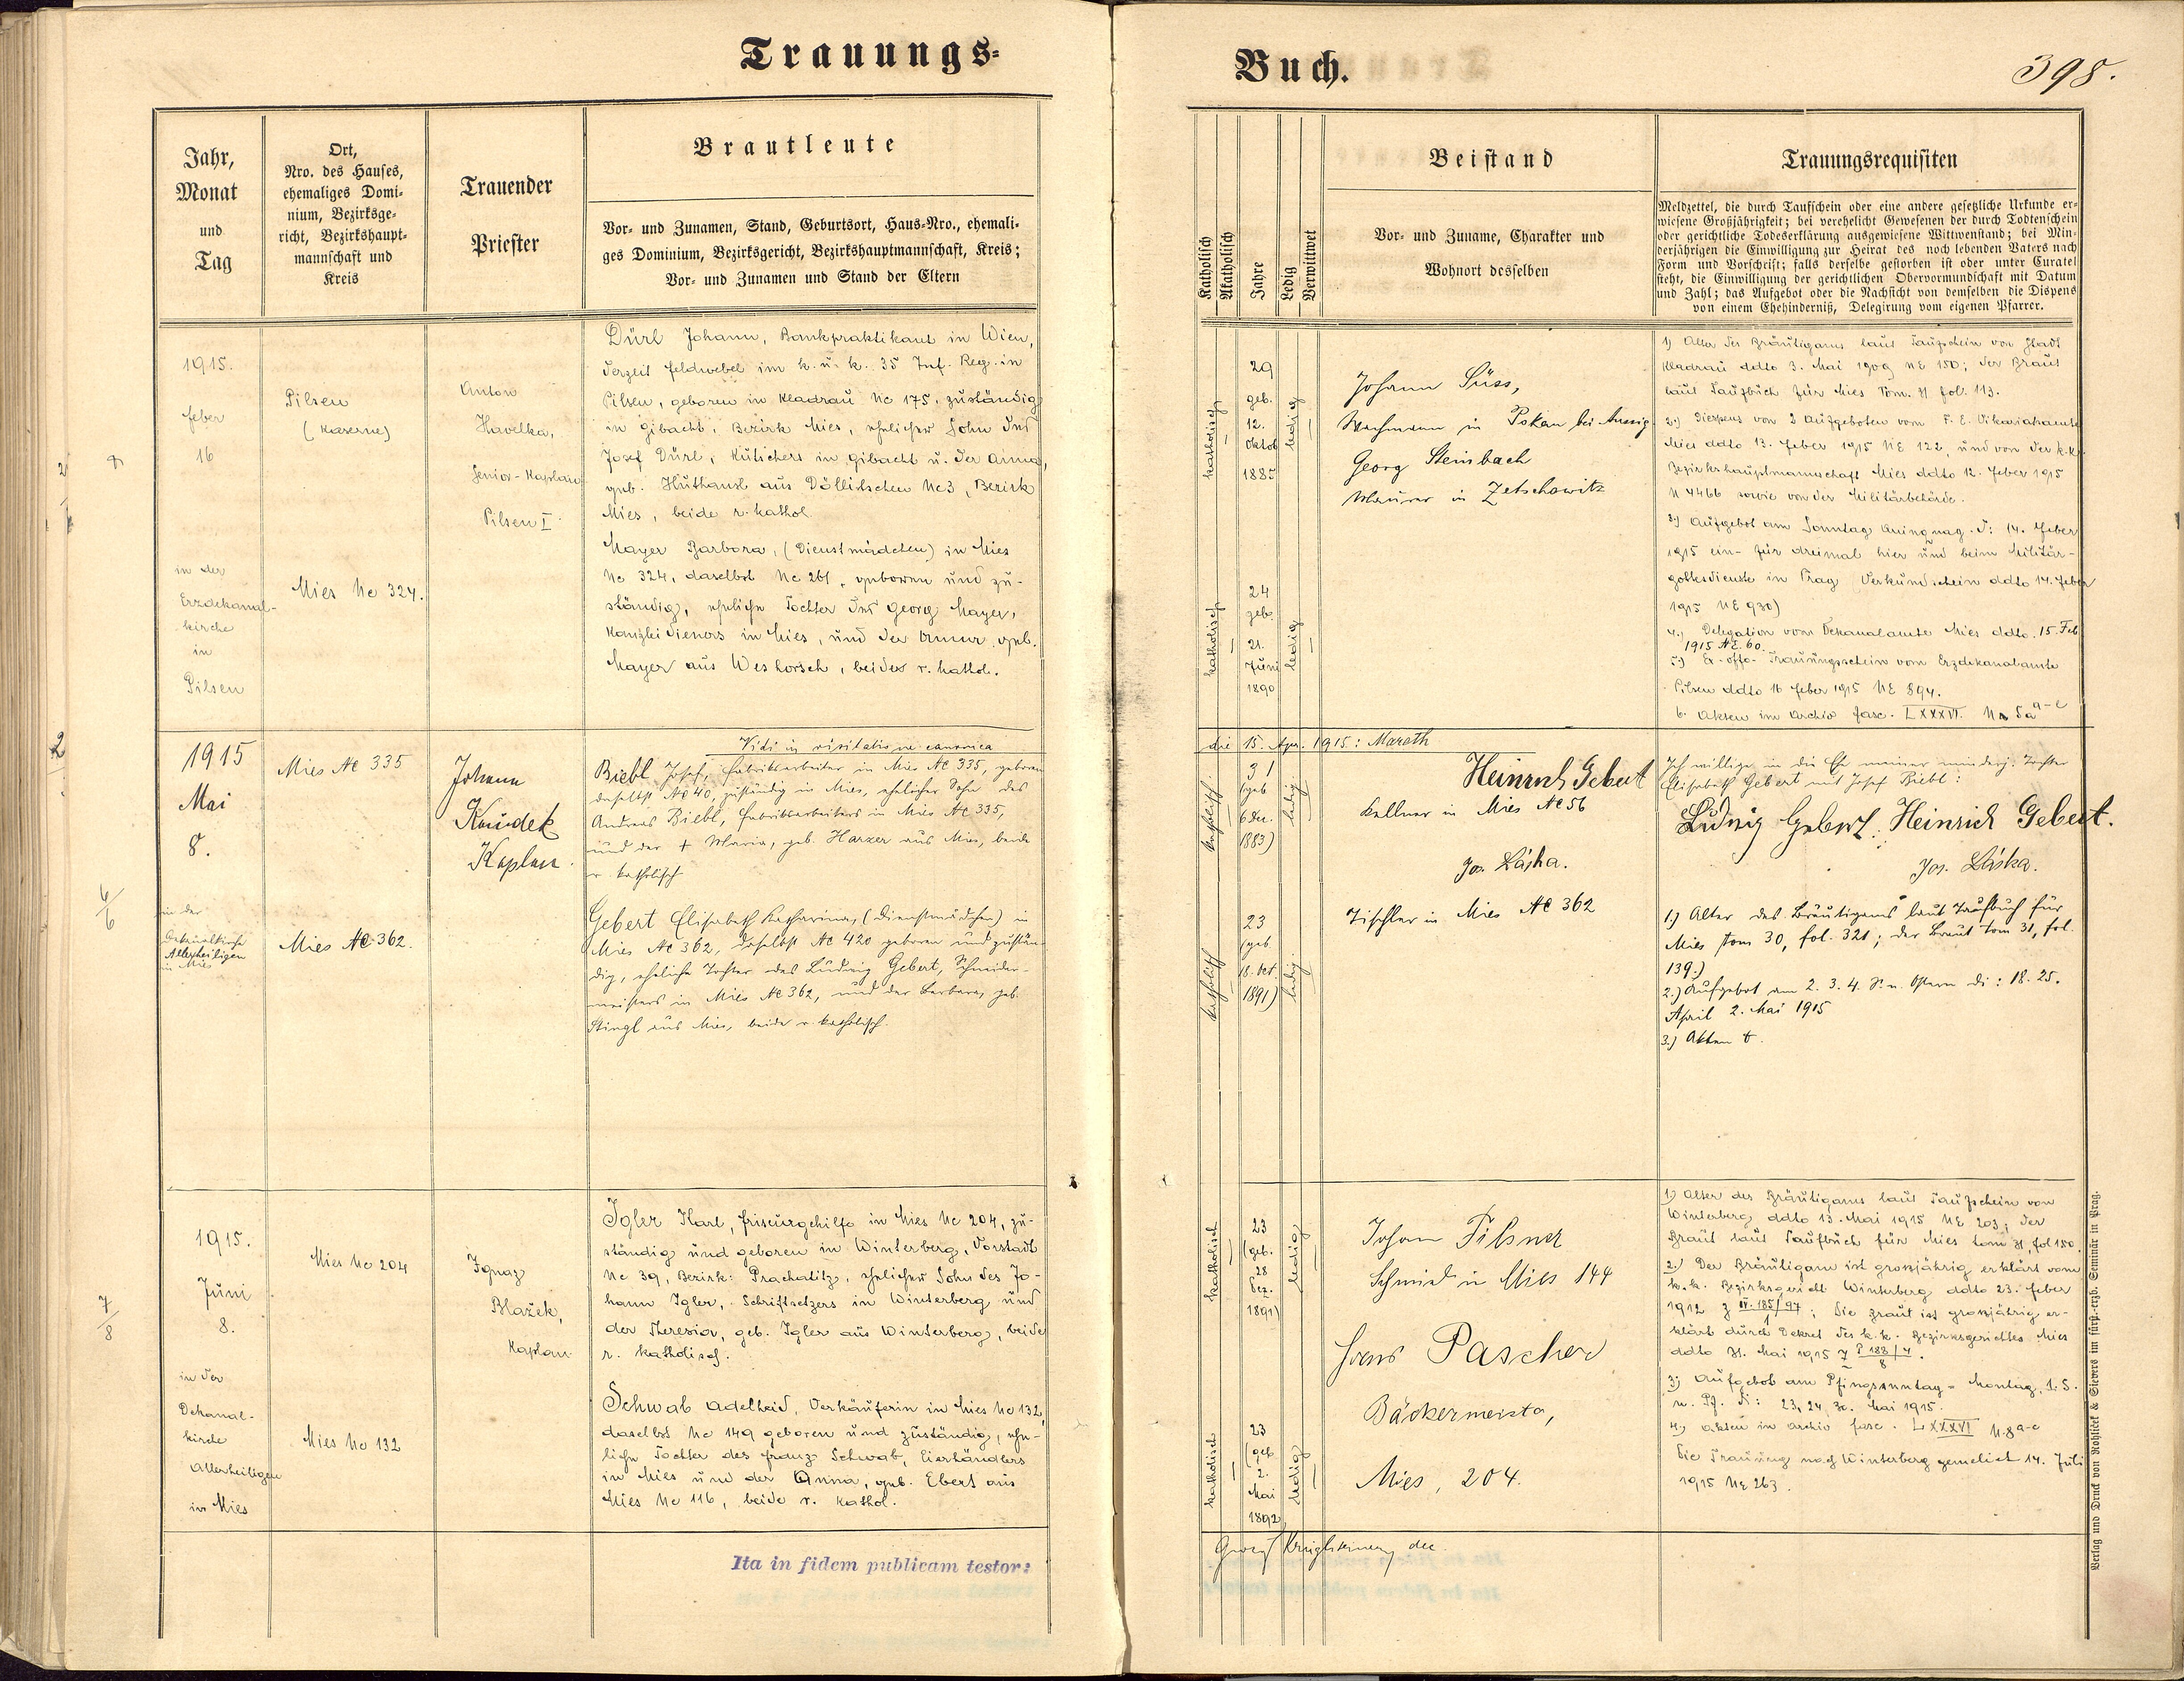 Trauungs-
Buch.
398.
Jahr,
Monat
und
Tag
Ort,
Nro. des Hauses,
ehemaliges Domi-
nium, Bezirksge-
richt, Bezirkshaupt-
mannschaft und
Kreis
Trauender
Priester
Brautleute
Vor- und Zunamen, Stand, Geburtsort, Haus-Nro., ehemali-
ges Dominium, Bezirksgericht, Bezirkshauptmannschaft, Kreis;
Vor- und Zunamen und Stand der Eltern
Katholisch
Akatholisch
Jahre
Ledig
Verwittwet
Beistand
Vor- und Zuname, Charakter und
Wohnort desselben
Trauungsrequisiten
Meldzettel, die durch Taufschein oder eine andere gesetzliche Urkunde er-
wiesene Großjährigkeit; bei verehelicht Gewesenen der durch Todtenschein
oder gerichtliche Todeserklärung ausgewiesene Wittwenstand; bei Min-
derjährigen die Einwilligung zur Heirat des noch lebenden Vaters nach
Form und Vorschrift; falls derselbe gestorben ist oder unter Curatel
steht, die Einwilligung der gerichtlichen Obervormundschaft mit Datum
und Zahl; das Aufgebot oder die Nachsicht von demselben die Dispens
von einem Ehehinderniß, Delegirung vom eigenen Pfarrer.
1915.
Feber
16
in der
Erzdekanal-
kirche
in
Pilsen
Pilsen
(Kaserne)
Mies Nc 324.
Anton
Havelka,
Senior-Kaplan
Pilsen I.
Dürl Johann, Bankpraktikant in Wien,
derzeit Feldwebel im k. u. k. 35 Inf. Reg. in
Pilsen, geboren in Kladrau Nc 175, zuständig
in Gibacht, Bezirk Mies, ehelicher Sohn des
Josef Dürl, Kutschers in Gibacht u. der Anna,
geb. Huthansl aus Döllitschen Nc 3, Bezirk
Mies, beide r. kathol.
Mayer Barbora, (Dienstmädchen) in Mies
Nc 324, daselbst Nc 261, geboren und zu-
ständig, eheliche Tochter des Georg Mayer,
Kanzleidieners in Mies, und der Anna, geb.
Mayer aus Weshorsch, beide r. kathol.
katholisch
29
geb.
12.
Oktob
1885
ledig
katholisch
24
geb.
21.
Juni
1890
ledig
Johann Süss,
Wachmann in Pokau bei Aussig
Georg Steinbach
Maurer in Zetschowitz
1) Alter des Bräutigams laut Taufschein von Stadt
Kladrau ddto 3. Mai 1909 NE 150; der Braut
laut Taufbuch für Mies Tom. 31 fol. 113.
2.) Dispens von 2 Aufgeboten vom F. E. Vikariatsamte
Mies ddto 13. Feber 1915 NE 122, und von der k.k.
Bezirkshauptmannschaft Mies ddto 12. Feber 1915
N 4466 sowie von der Militärbehörde.
3.) Aufgebot am Sonntag Quinquag. d: 14. Feber
1915 ein- für dreimal hier und beim Militär-
gottesdienste in Prag (Verkündschein ddto 14. Feber
1915 NE 930)
4.) Delegation vom Dekanalamte Mies ddto. 15. Feb
1915 NE. 60.
5.) Ex-offo-Trauungsschein vom Erzdekanalamte
Pilsen ddto 16 Feber 1915 NE 894.
6. Akten im Archiv fasc. LXXXVI. N 5a a-e
Vidi in visitatione canonica
die 15. Apr. 1915: Mareth
1915
Mai
8.
in der
Dekanalkirche
Allerheiligen
in Mies
Mies Nc 335
Mies Nc 362.
Johann
Koudek
Kaplan.
Biebl Josef, Fabriksarbeiter in Mies Nc 335, geboren
daselbst Nc 40, zuständig in Mies, ehelicher Sohn des
Andreas Biebl, Fabriksarbeiters in Mies Nc 335,
und der † Maria, geb. Harzer aus Mies, beide
r. katholisch
Gebert Elisabeth Katharina, (Dienstmädchen) in
Mies Nc 362, daselbst Nc 420 geboren und zustän-
dig, eheliche Tochter des Ludwig Gebert, Schneider-
meisters in Mies Nc 362, und der Barbara, geb.
Stingl aus Mies, beide r. katholisch.
katholisch
31
(geb.
6 Dez.
1883)
ledig
katholisch
23
(geb.
18. Okt.
1891)
ledig
Heinrich Gebert
Kellner in Mies Nc 56
Jos. Láska.
Tischler in Mies Nc 362
Ich willige in die Ehe meiner minderj. Tochter
Elisabeth Gebert mit Josef Biebl:
Ludwig Gebert. Heinrich Gebert.
Jos. Láska.
1.) Alter des Bräutigams laut Taufbuch für
Mies tom 30, fol. 321; der Braut tom 31, fol.
139.)
2.) Aufgebot am 2. 3. 4. S. n. Ostern di: 18. 25.
April 2. Mai 1915
3.) Akten t.
1915.
Juni
8.
in der
Dekanal-
kirche
Allerheiligen
in Mies
Mies Nc 204
Mies Nc 132
Ignaz
Blažek,
Kaplan.
Igler Karl, Friseurgehilfe in Mies Nc 204, zu-
ständig und geboren in Winterberg, Vorstadt
Nc 39, Bezirk: Prachatitz, ehelicher Sohn des Jo-
hann Igler, Schriftsetzers in Winterberg und
der Theresia, geb. Igler aus Winterberg, beide
r. katholisch.
Schwab Adelheid, Verkäuferin in Mies Nc 132,
daselbst Nc 149 geboren und zuständig, ehe-
liche Tochter des Franz Schwab, Eierhändlers
in Mies und der Anna, geb. Ebert aus
Mies Nc 116, beide r. kathol.
katholisch
23
(geb.
28
Dez.
1891)
ledig
katholisch
23
(geb
2.
Mai
1892
ledig
Johann Pilsner
Schmied in Mies 144
Pascher
Bäckermeister,
Mies, 204.
1.) Alter des Bräutigams laut Taufschein von
Winterberg ddto 13. Mai 1915 NE 203; der
Braut laut Taufbuch für Mies tom 31, fol 150.
2.) Der Bräutigam ist grossjährig erklärt vom
k.k. Bezirksgericht Winterberg ddto 23. Feber
1912 ; die Braut ist grossjährig er-
klärt durch Dekret des k.k. Bezirksgerichtes Mies
ddto 31. Mai 1915
3.) Aufgebot am Pfingsonntag - Montag, 1. S.
n. Pf. d: 23, 24, 30. Mai 1915.
4.) Akten in Archiv fasc. LXXXVI N.8 a-e
Die Trauung nach Winterberg gemeldet 14. Juli
1915 NE 263.
Ita in fidem publicam testor:
Verlag und Druck von Rohlíček & Sievers im fürst.-erzb. Seminär in Prag.
2
6/6
7/8